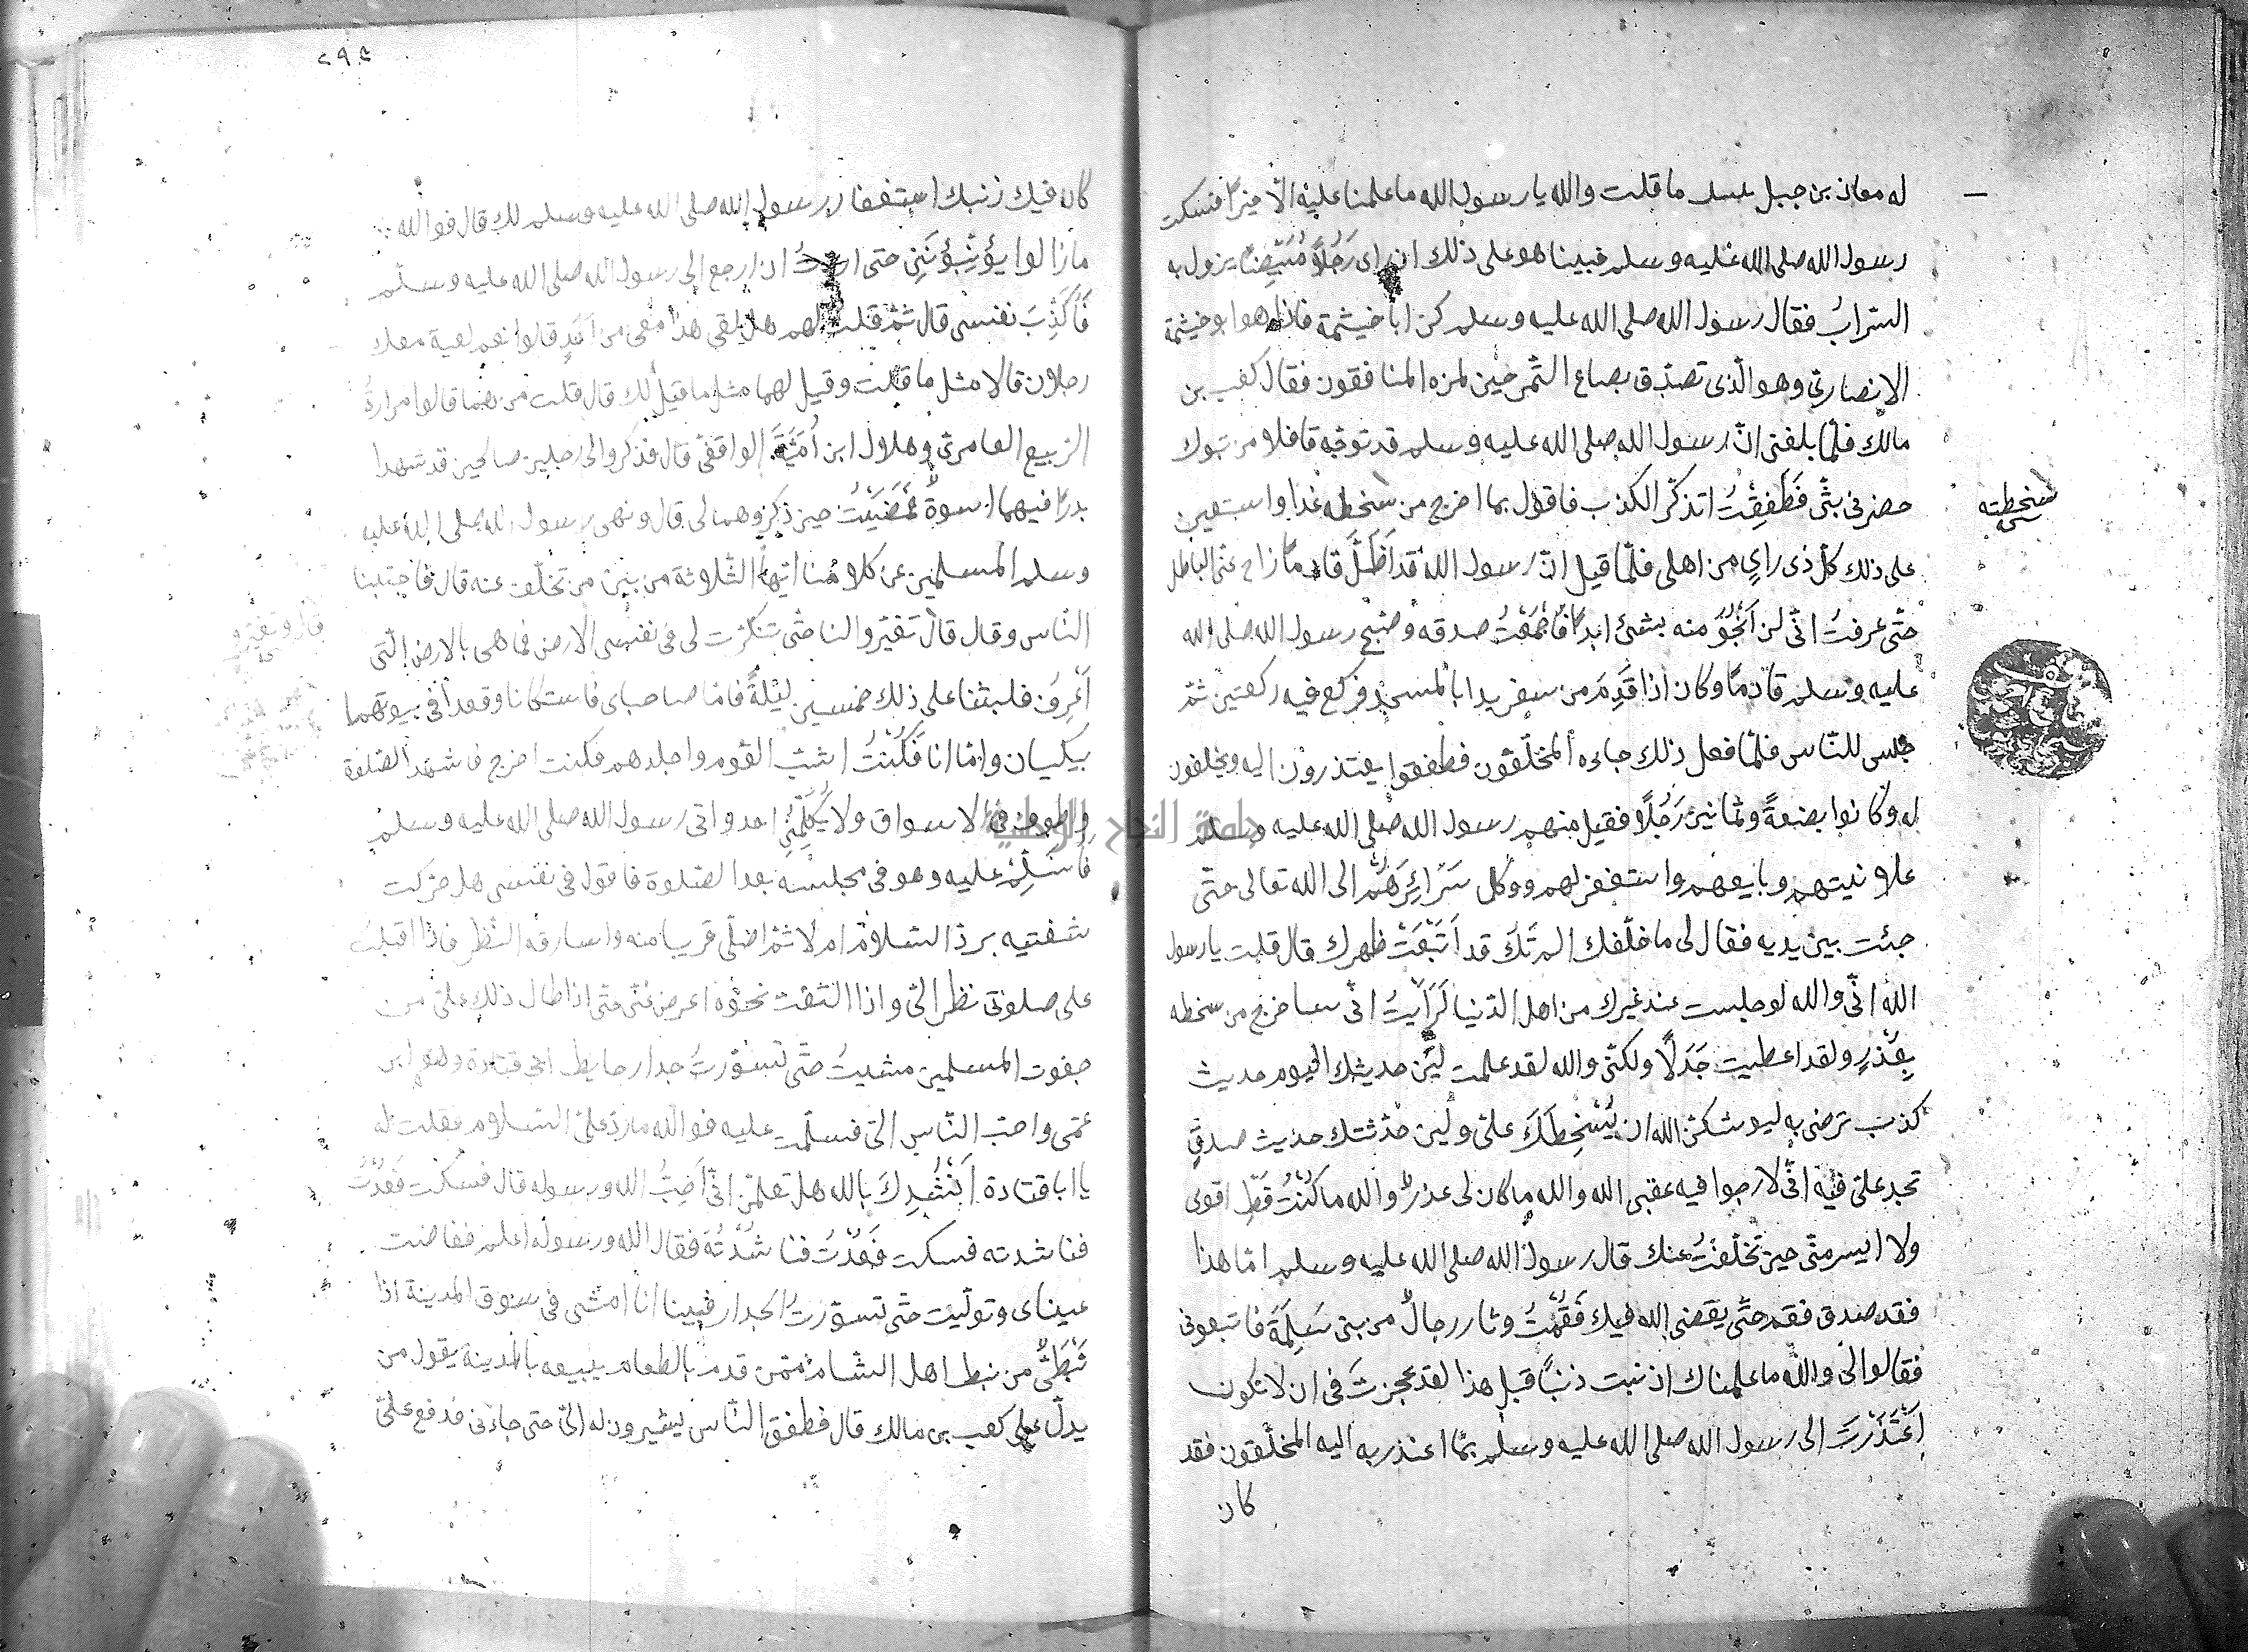 له معاذ بن جبل بئسما قلت والله يا رسول الله ما علمنا عليه الّا خيرًا فسكت
رسول الله صلى الله عليه وسلم فبينا هو على ذلك ان راى رَجُلاً مُبَيّضًا يزول به
السّرابُ فقال رسول الله صلى الله عليه وسلم كن ابا خيثمة فاذا هو ابو خيثمة
الانصاريّ وهو الّذى تصدّق بصاع التّمر حين لمزه المنافقون فقال كعب بن
مالك فلمّا بلغنى انّ رسول الله صلى الله عليه وسلم قد توجّه قافلا من تبوك
حضرنى بثّى فَطَفِقْتُ اتذكّر الكذب فاقول بما اخرج من سخطه غدا واستعين
سخطته
على ذلك كلّ ذى راىٍ من اهلى فلمّا قيل انّ رسول الله قد اَظَلَّ قادمًا زاح عنّى الباطل
حتّى عرفتُ انّى لن اَنْجُوَ منه بشئ ابدًا فَاَجْمَعْتُ صدقه وصبّح رسول الله صلى الله
عليه وسلم قادمًا وكان اذا قَدِمَ من سفر بدا بالمسجد فركع فيه ركعتين ثمّ
جلس للنّاس فلمّا فعل ذلك جاءه المخلّفون فطفقوا يعتذرون اليه ويحلفون
له وكانوا بضعةً وثمانين رَجُلًا فقبل منهم رسول الله صلى الله عليه وسلم
علانيتهم وبايعهم واستغفر لهم ووكل سَرَائِرَهُمْ الى الله تعالى حتّى
جئت بين يديه فقال لى ما خلّفك الم تَكُ قد اَبْتَعْتَ ظهرك قال قلت يا رسول
الله انّى والله لو جلست عند غيرك من اهل الدّنيا لَرَاَيْتُ انّى ساخرج من سخطه
بِعُذْرٍ ولقد اعطيت جَدَلًا ولكنّى والله لقد علمت لَئِنْ حديثك اليوم حديث
كذب ترضى به ليوشكنّ الله ان يُسْخِطَكَ علىّ ولين حدّثتك حديث صدقٍ
تجد علىّ فيه انّى لارجوا فيه عقبى الله والله ما كان لى عذرٌ والله ما كُنْتُ قَطّ اقوى
ولا ايسر منّى حين تَخَلّفْتُ عنك قال رسول الله صلى الله عليه وسلم امّا هذا
فقد صدق فقم حتّى يقضى الله فيك فَقُمْتُ وثار رجالٌ من بنى سَلِمَةَ فاتبعونى
فقالوا لى والله ما علمناك اذنبت ذنبًا قبل هذا لقد عجزتَ فى ان لا تكون
اعْتَذَرْتَ الى رسول الله صلى الله عليه وسلم بما اعتذر به اليه المخلّفون فقد
كان
٢٩٤
كان فيك ذنبك استغفار رسول الله صلى الله عليه وسلم لك قال فوالله
مازالوا يؤنّبونَنِى حتى اردتُ ان ارجع الى رسول الله صلى الله عليه وسلّم
فَاُكَذِّبَ نفسى قال ثمّ قلت لهم هل لقى هذا معى من اَحَدٍ قالوا نعم لقيه معك
رجلان قالا مثل ما قلت وقيل لهما مثل ما قيل لك قال قلت من هما قالوا مرارةُ
الربيع العامرىّ وهلال ابن اُمَيَّةَ الواقفىّ قال فذكروا لى رجلين صالحين قد شهدا
بدرًا فيهما اسوةٌ فَمَضَيْتُ حين ذكروهما لى قال ونهى رسول الله صلى الله عليه
وسلم المسلمين عن كلامنا ايّها الثّلاثة من بين من تخلّف عنه قال فاجتنبنا
النّاس وقال قال تَغيّروا لنا حتّى تنكّرت لى فى نفسى الارض فما هى بالارض الّتى
اَعْرِف فلبثنا على ذلك خمسين ليلةً فامّا صاحباى فاستكانا وقعدا فى بيوتهما
يبكيان وامّا انا فَكُنْتُ اشبّ القوم واجلدهم فكنت اخرج فاشهد الصّلوة
واطوف فى الاسواق ولا يُكَلِّمُنِى احد واتى رسول الله صلى الله عليه وسلم
جامعة النجاح الوطنية
فَاُسَلِّمُ عليه وهو فى مجلسه بعد الصّلوة فاقول فى نفسى هل حرّكت
شفتيه بردّ السّلام ام لا ثمّ اصلّى قريبا منه واسارقه النّظر فاذا اقبلتُ
على صلوتى نظر الىّ واذا التفتّ نحوه اعرض عنّى حتّى اذا طال ذلك علىّ من
جفوت المسلمين مشيتُ حتّى تسوّرتُ جدار حايط ابى قتادة وهو ابن
عمّى واحبّ النّاس الىّ فسلّمت عليه فوالله ما ردّ علىّ السّلام فقلت له
يا ابا قتادة اَنْشُدُكَ بالله هل تعلمنّ انّى اُحِبُّ الله ورسوله قال فسكت فَعُدْتُ
فناشدته فسكت فَعُدْتُ فناشَدْتُهُ فقال الله ورسوله اعلم ففاضت
عيناى وتولّيت حتّى تسوّرتُ الجدار فبينا انا امشى فى سوق المدينة اذا
نَبَطِىٌّ من نبط اهل الشّام ممّن قدم بالطعام يبيعه بالمدينة يقول من
يدلّ على كعب بن مالك قال فطفق النّاس يشيرون له الىّ حتى جاءنى فدفع علىّ